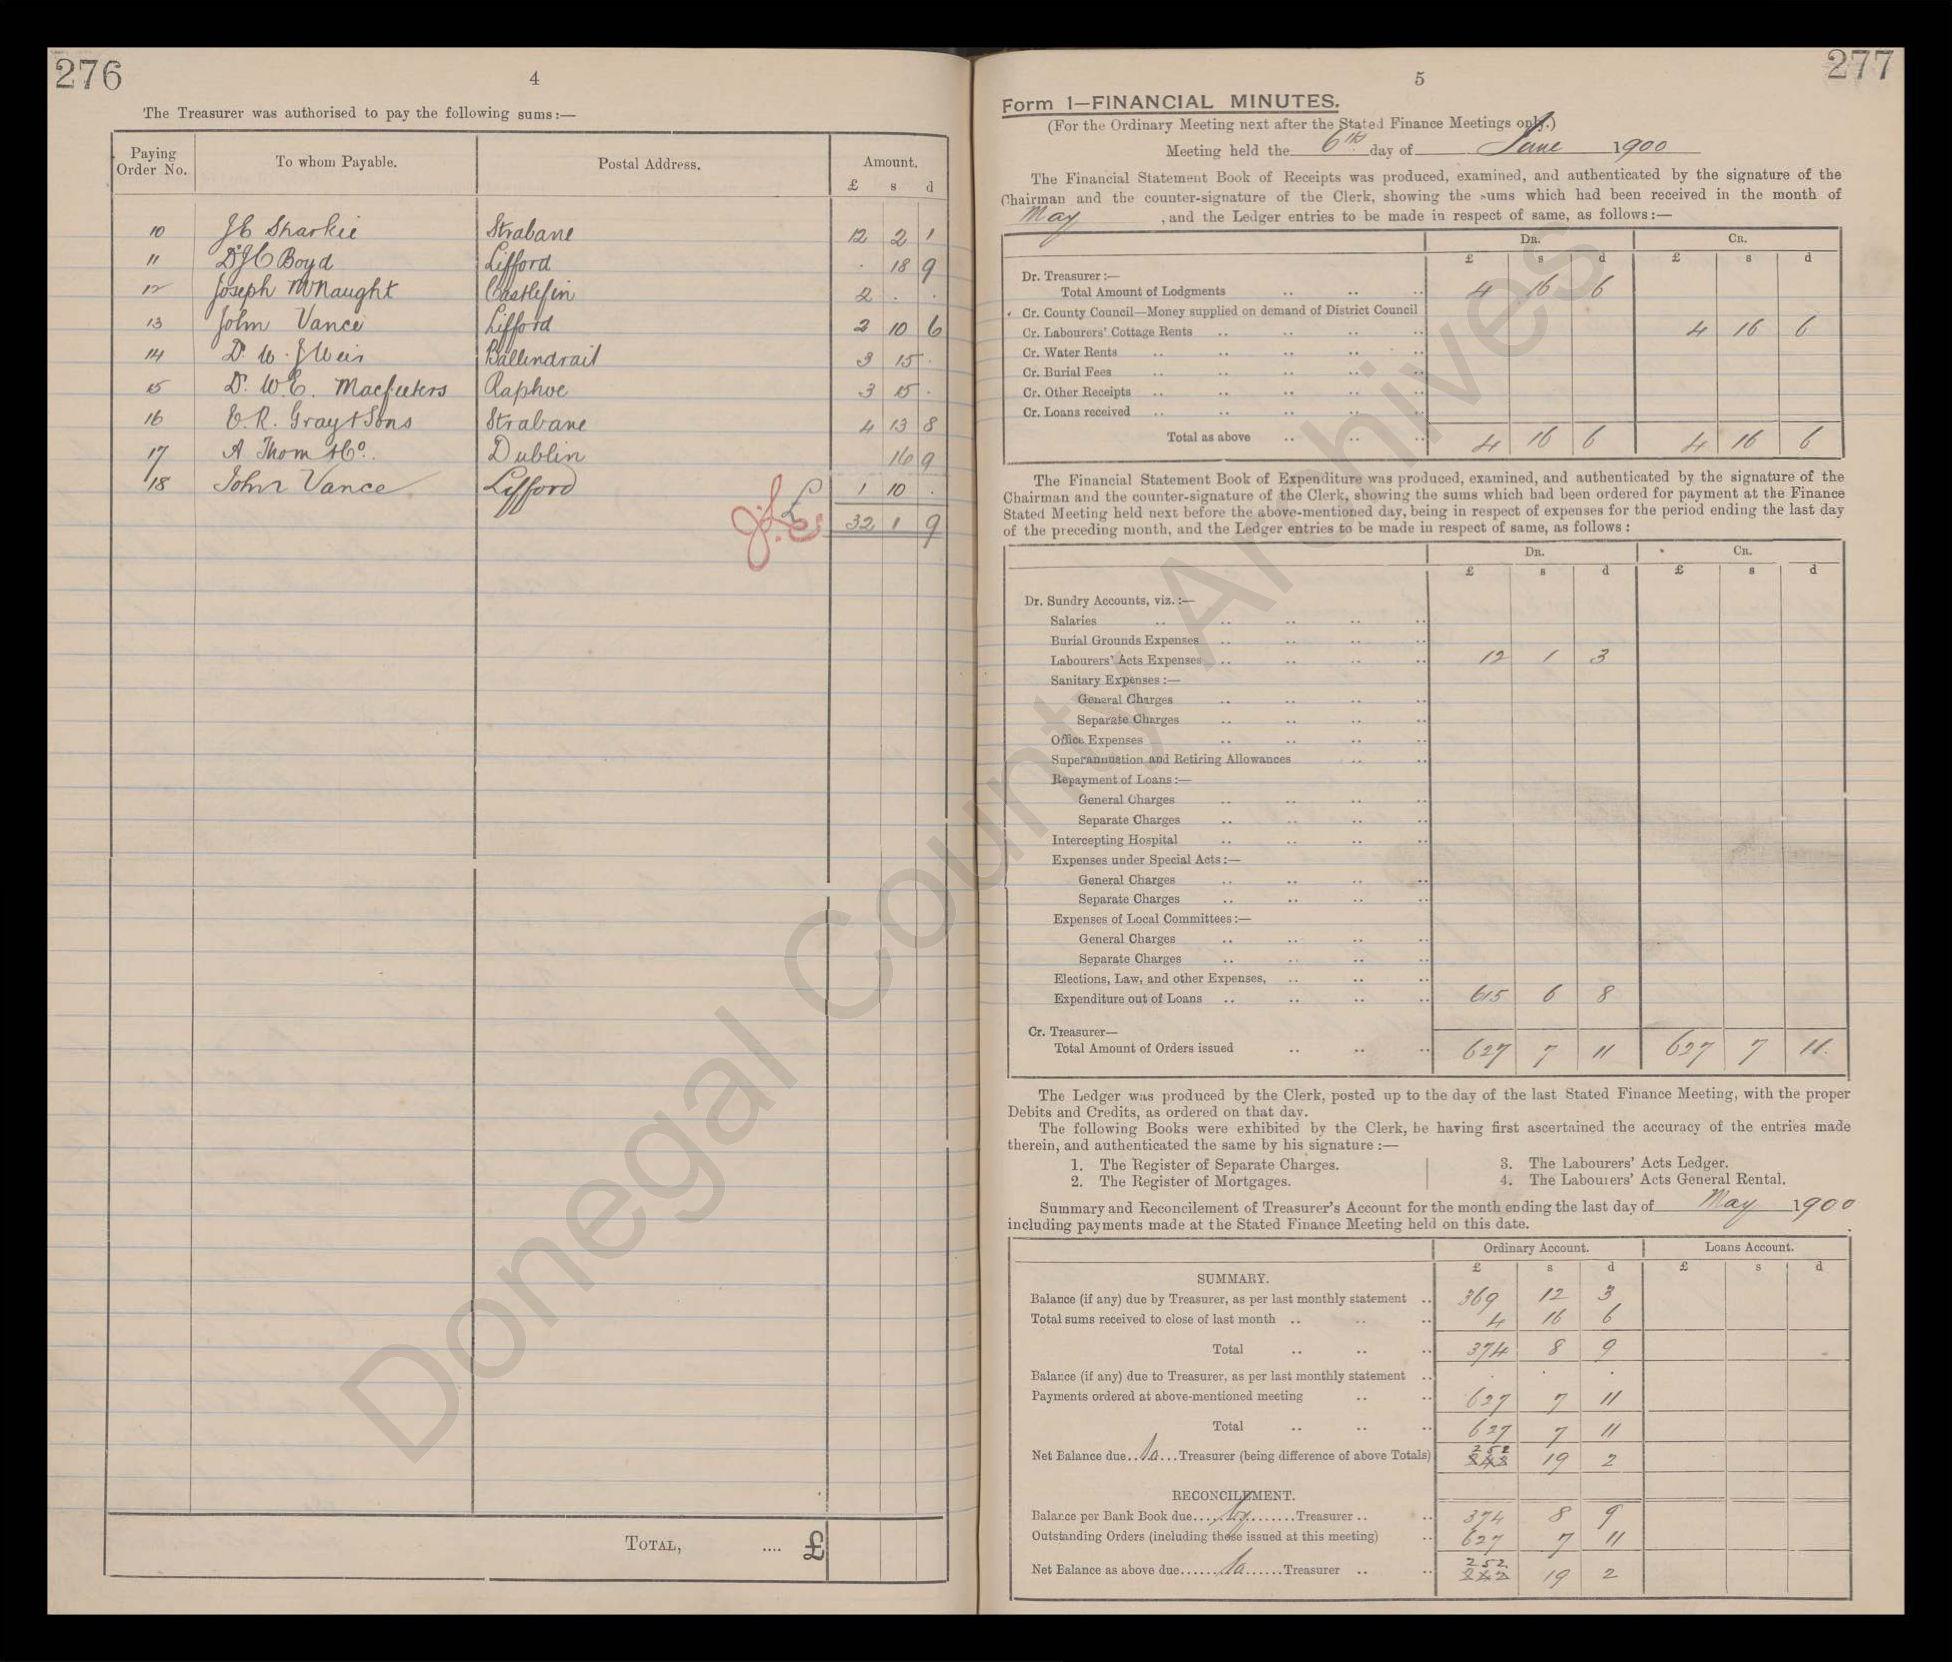 276
4
The Treasurer was authorised to pay the following sums:—
Paying Order No. To whom Payable. Postal Address. Amount.
£ s d
10 J C Sharkie Strabane 12 2 1
11 Dr J C Boyd Lifford . 18 9
12 Joseph McNaught Castlefin 2 . .
13 John Vance Lifford 2 10 6
14 Dr. W. J Weir Ballindrait 3 15 .
15 Dr. W. E. Macfeeters Raphoe 3 15 .
16 E. R. Gray & Sons Strabane 4 13 8
17 A Thom & Co. Dublin 16 9
18 John Vance Lifford 1 10 .
£ 32 1 9
TOTAL, .... £
277
5
Form 1—FINANCIAL MINUTES.
(For the Ordinary Meeting next after the Stated Finance Meetings only.)
Meeting held the 6th day of June 1900
The Financial Statement Book of Receipts was produced, examined, and authenticated by the signature of the
Chairman and the counter-signature of the Clerk, showing the sums which had been received in the month of
May , and the Ledger entries to be made in respect of same, as follows:—
DR. CR.
£ s d £ s d
Dr. Treasurer:—
Total Amount of Lodgments .. .. .. 4 16 6
Cr. County Council—Money supplied on demand of District Council
Cr. Labourers' Cottage Rents .. .. .. .. 4 16 6
Cr. Water Rents .. .. .. .. ..
Cr. Burial Fees .. .. .. .. ..
Cr. Other Receipts .. .. .. .. ..
Cr. Loans received .. .. .. .. ..
Total as above .. .. .. 4 16 6 4 16 6
The Financial Statement Book of Expenditure was produced, examined, and authenticated by the signature of the
Chairman and the counter-signature of the Clerk, showing the sums which had been ordered for payment at the Finance
Stated Meeting held next before the above-mentioned day, being in respect of expenses for the period ending the last day
of the preceding month, and the Ledger entries to be made in respect of same, as follows:
DR. CR.
£ s d £ s d
Dr. Sundry Accounts, viz.:—
Salaries .. .. .. .. ..
Burial Grounds Expenses .. .. .. ..
Labourers' Acts Expenses .. .. .. .. 12 1 3
Sanitary Expenses:—
General Charges .. .. .. ..
Separate Charges .. .. .. ..
Office Expenses .. .. .. ..
Superannuation and Retiring Allowances .. ..
Repayment of Loans:—
General Charges .. .. .. ..
Separate Charges .. .. .. ..
Intercepting Hospital .. .. .. ..
Expenses under Special Acts:—
General Charges .. .. .. ..
Separate Charges .. .. .. ..
Expenses of Local Committees:—
General Charges .. .. .. ..
Separate Charges .. .. .. ..
Elections, Law, and other Expenses, .. .. ..
Expenditure out of Loans .. .. .. .. 615 6 8
Cr. Treasurer—
Total Amount of Orders issued .. .. .. 627 7 11 627 7 11.
The Ledger was produced by the Clerk, posted up to the day of the last Stated Finance Meeting, with the proper
Debits and Credits, as ordered on that day.
The following Books were exhibited by the Clerk, he having first ascertained the accuracy of the entries made
therein, and authenticated the same by his signature:—
1. The Register of Separate Charges. 3. The Labourers' Acts Ledger.
2. The Register of Mortgages. 4. The Labourers' Acts General Rental.
Summary and Reconcilement of Treasurer's Account for the month ending the last day of May 1900
including payments made at the Stated Finance Meeting held on this date.
Ordinary Account. Loans Account.
£ s d £ s d
SUMMARY.
Balance (if any) due by Treasurer, as per last monthly statement .. 369 12 3
Total sums received to close of last month .. .. .. 4 16 6
Total .. .. .. 374 8 9
Balance (if any) due to Treasurer, as per last monthly statement .. . .
Payments ordered at above-mentioned meeting .. .. 627 7 11
Total .. .. .. 627 7 11
Net Balance due..to...Treasurer (being difference of above Totals) 252 19 2
RECONCILEMENT.
Balance per Bank Book due....by.......Treasurer .. .. 374 8 9
Outstanding Orders (including those issued at this meeting) .. 627 7 11
Net Balance as above due......to......Treasurer .. .. 252 19 2
Donegal County Archives